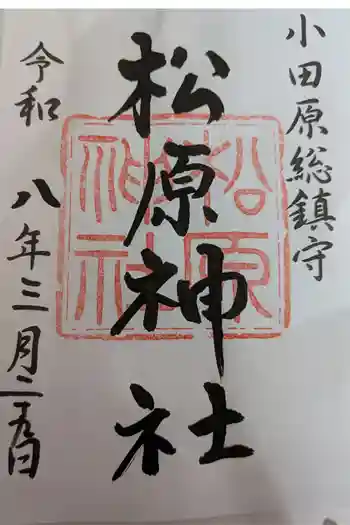 小田原総鎮守
松原神社
松原神社
令和八年三月二十五日